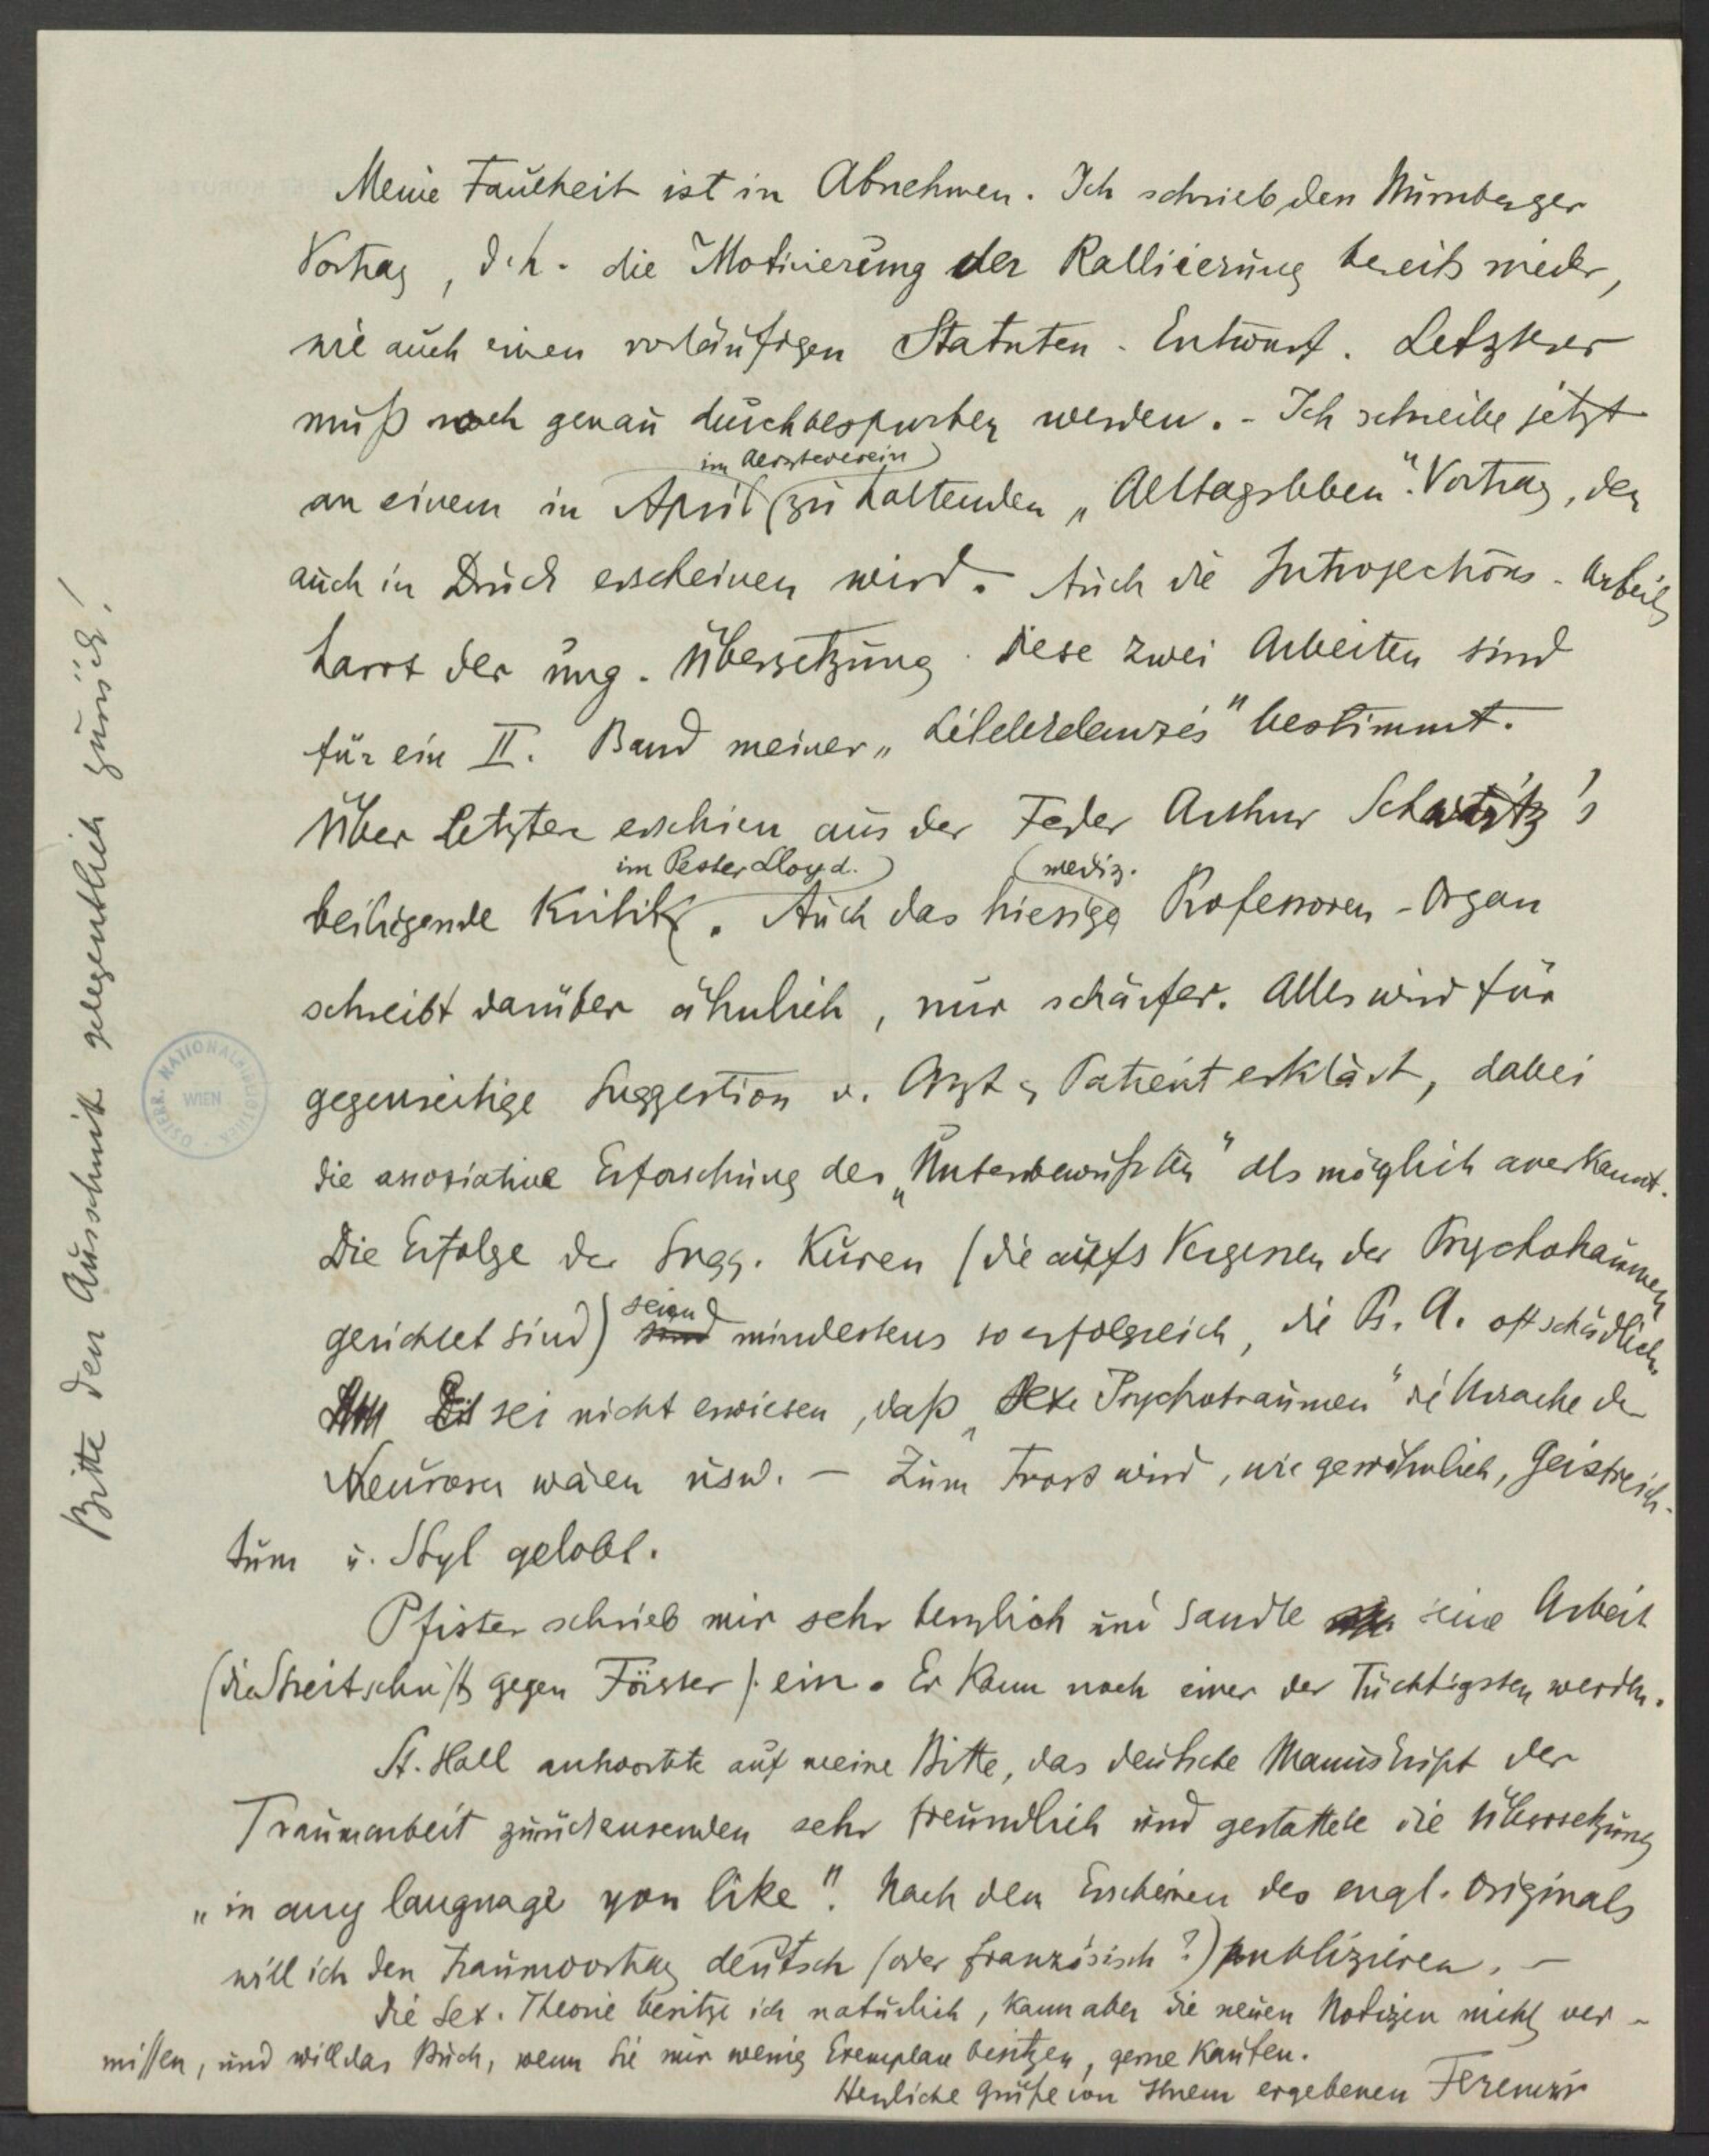 Meine Faulheit ist in Abnehmen. Ich schrieb den Nürnberger
Vortrag, d.h. die Motivierung der Ralliierung bereits nieder,
wie auch einen vorläufigen Statuten-Entwurf. Letzterer
muß noch genau durchbesprochen werden. - Ich schreibe jetzt
im Aerzteverein
an einem in April zu haltenden „Alltagsleben“-Vortrag, der
auch in Druck erscheinen wird. Auch die Introjections-Arbeit
harrt der ung. Übersetzung. Diese zwei Arbeiten sind
für ein II. Band meiner „Lélekelemzés“ bestimmt.
Über letztere erschien aus der Feder Arthur 's
im Pester Lloyd. (mediz.
beiligende Kritik. Auch das hiesige Professoren-Organ
schreibt darüber ähnlich, nur schärfer. Alles wird für
gegenseitige Suggestion v. Arzt u Patient erklärt, dabei
die assosiative Erforschung des „Unterbewußten“ als möglich anerkannt.
Die Erfolge der Sugg. Kuren (die aufs Vergessen der Psychotraumen
gerichtet sind) seien mindestens so erfolgreich, die Ps. A. oft schädlich.
Es sei nicht erwiesen, daß „sexe Psychotraumen“ die Ursache der
Neurosen wären usw. — Zum Trost wird, wie gewöhnlich, Geistreich-
tum u. Styl gelobt.
Pfister schrieb mir sehr herzlich und sandte seine Arbeit
(die Streitschrift gegen Förster) ein. Er kann noch einer der Tüchtigsten werden.
St. Hall antwortete auf meine Bitte, das deutsche Manuskript der
Traumarbeit zurückzusenden sehr freundlich und gestattete die Übersetzung
„in any language you like“. Nach dem Erscheinen des engl. Originals
will ich den Traumvortrag deutsch (oder französisch?) publizieren. —
Die Sex. Theorie besitze ich natürlich, kann aber die neuen Notizen nicht ver-
missen, und will das Buch, wenn Sie nur wenig Exemplare besitzen, gerne kaufen.
Herzliche Grüße von Ihrem ergebenen Ferenczi
Bitte den Ausschnitt gelegentlich zurück!
ÖSTERR. NATIONALBIBLIOTHEK
WIEN